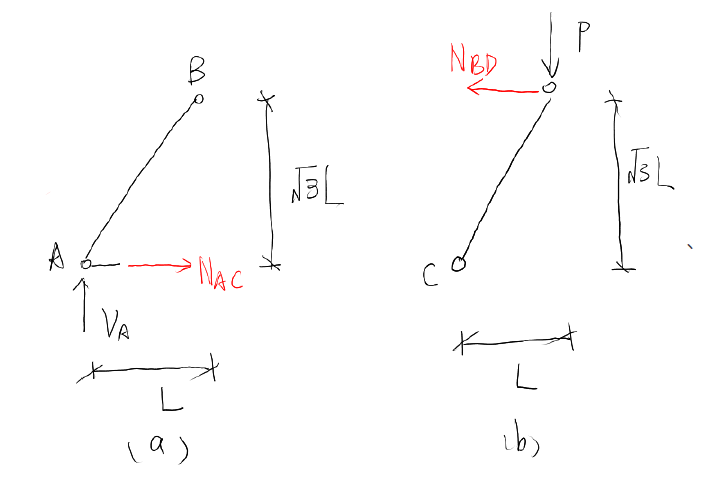 B
√3L
A
N_AC
V_A
L
(a)
P
N_BD
√3L
C
L
(b)